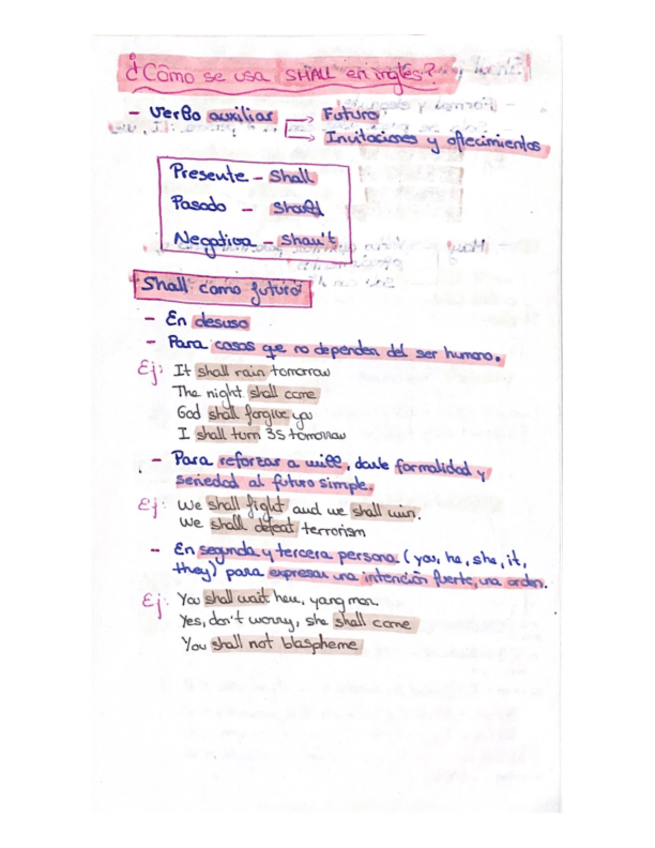 ¿Cómo se usa SHALL en inglés?
- Verbo auxiliar → Futuro
→ Invitaciones y ofrecimientos
Presente - Shall
Pasado -
Negativa - Shan't
Shall como futuro
- En desuso
- Para casos que no dependen del ser humano.
Ej: It shall rain tomorrow
The night shall come
God shall forgive you
I shall turn 35 tomorrow
- Para reforzar a will, darle formalidad y
seriedad al futuro simple.
Ej: We shall fight and we shall win.
We shall defeat terrorism
- En segunda y tercera persona (you, he, she, it,
they) para expresar una intención fuerte, una orden.
Ej: You shall wait here, young man.
Yes, don't worry, she shall come
You shall not blaspheme